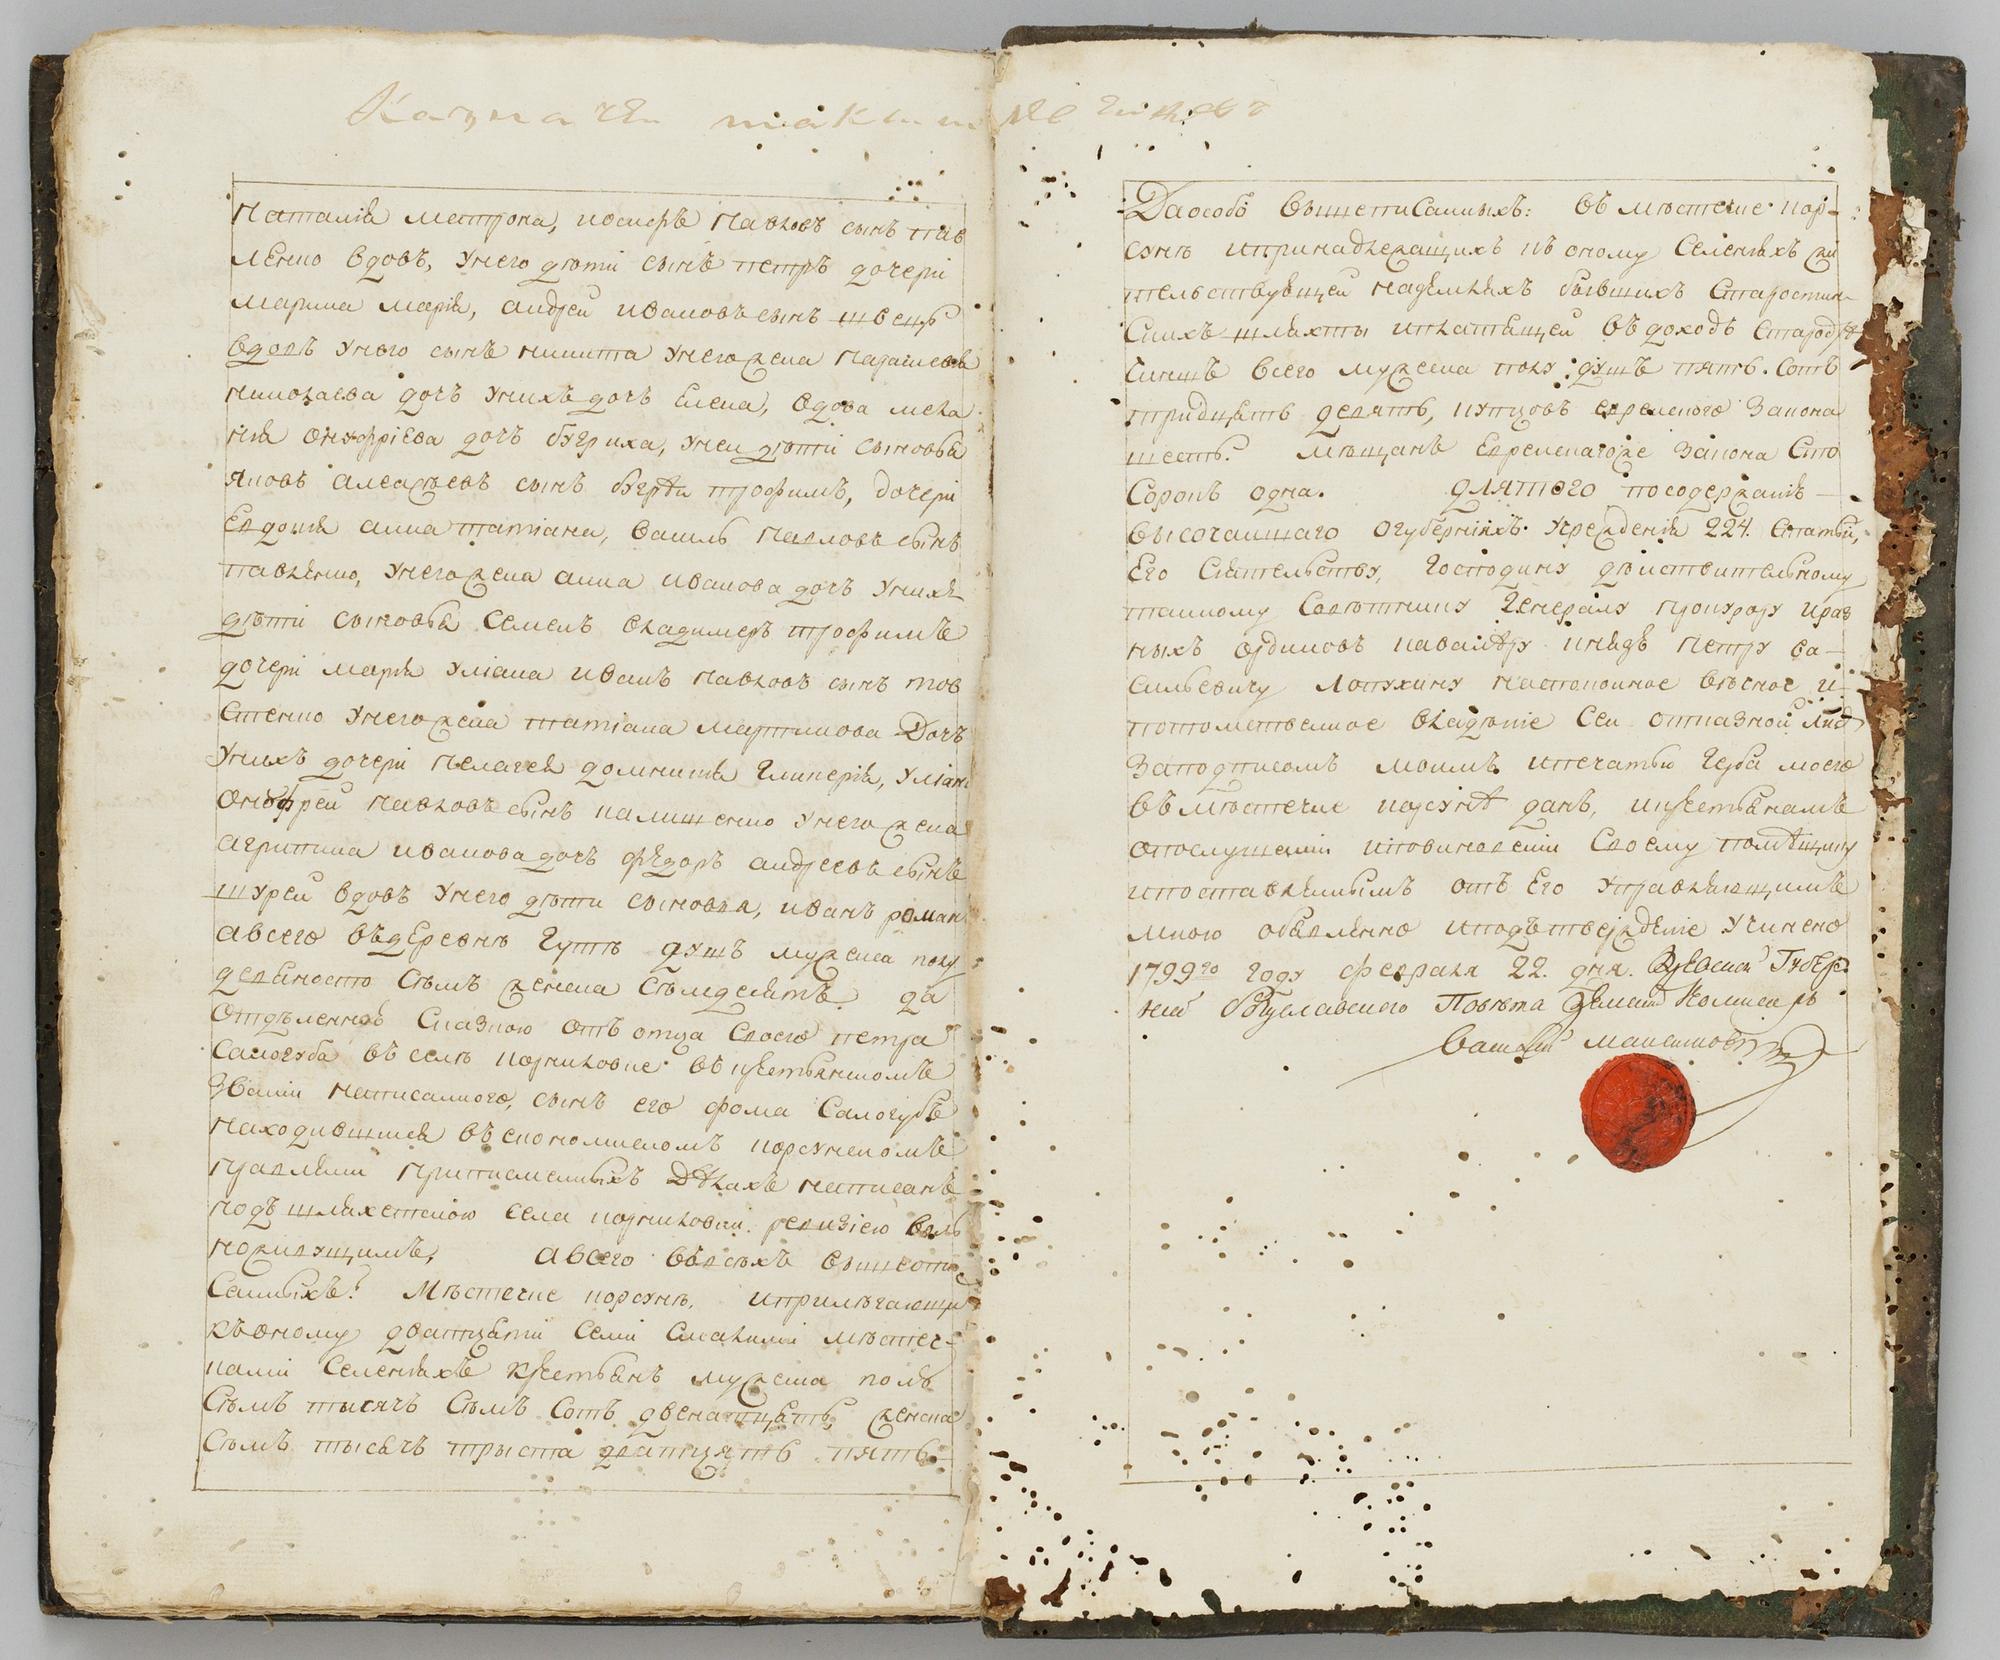 Наталія Матрона, иосифъ Павловъ сынъ Пав
ленко вдовъ, Унего дѣти сынъ петръ дочери
Марина Марія, андрей ивановъ сынъ швецъ
вдовъ Унего сынъ никита Унего жена Параскевія
николаева дочъ Унихъ дочъ Елена, вдова мела
нія онуфріева дочъ бугриха, Унеи дѣти сыновья
яковъ алексѣевъ сынъ трофимъ, дочери
Евдокія анна татіана, василь Павловъ сынъ
павленко, Унего жена анна иванова дочъ Унихъ
дѣти сыновья Семенъ владимеръ трофимъ
дочери марія Уліана иванъ Павловъ сынъ тов
стенко Унего жена татіана мартинова Дочъ
Унихъ дочери Пелагея домникія Гликерія, Уліана
Онофрей Павловъ сынъ калишенко Унего жена
агрипина иванова дочъ федоръ андреевъ сынъ
шурей вдовъ Унего дѣти сыновья, иванъ роман
авсего въдеревнѣ Гутѣ душъ мужеска полу
девяносто Семъ женска Семдесятъ да
Отдѣленной Сказкою отъ отца Своего петра
Самогуба въ селѣ корниловке въ крестьянскомъ
Званіи написанного, сынъ его фома Самогубъ
находившийся въ економическомъ корсунскомъ
правленіи при писменныхъ Дѣлахъ написанъ
подъ шляхетскою села корниловки ревизіею вь
можидущимъ, авсего вовсѣхъ вышепи
Санныхъ: Мѣстечке корсунѣ, иприлегающи
къоному двадцати Семи Смалими мѣстеч-
ками Селеніяхъ крестьянъ мужеска полу
Семъ тысячъ Семъ Сотъ двенатцать, женска
Семъ тысячъ триста двадцать пять
Даособо вышеписанныхъ: въ мѣстечке кор-
сунѣ ипринадлежащихъ къ оному Селеніяхъ жи
тельствующей наземляхъ бывшихъ Старостин-
Скихъ шляхты иплатящей въ доходъ Староста
Чиншъ всего мужеска полу душъ пять Сотъ
тридцать девять, купцовъ евреского Закона
шесть: Мѣщанъ Евреского же Закона Сто
Сорокъ одна. Длятого посодержанію
высочайшаго огуберніяхъ Учрежденія 224 Статьи,
Его Сіятельству, Господину действительному
тайному Советнику Генералу прокурору и раз
ныхъ орденовъ кавалеру князь Петру ва-
сильевичу Лопухину настоящое вѣчное и
потомственное владѣніе Сей отказной листъ
Заподписомъ моимъ ипечатью Герба моего
въ мѣстечке корсунѣ данъ, икрестьянамъ
опослушаніи иповиновеніи Своему помѣщику
ипоставленнымъ отъ Его Управляющимъ
мною объявленно иподтвержденіе Учинено
1799го Году февраля 22. дня. Киевской Губер
ніи Богуславского Повѣта Земскій Комисаръ